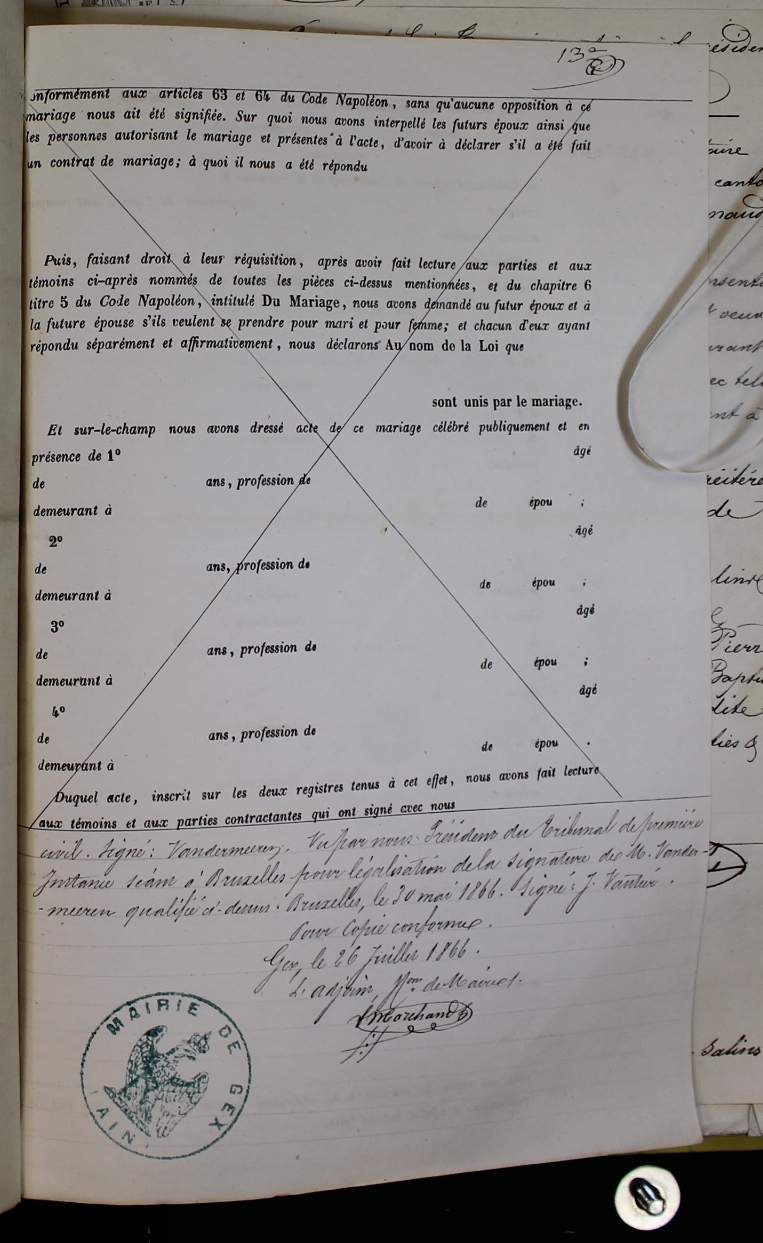 13
onformément aux articles 63 et 64 du Code Napoléon, sans qu'aucune opposition à ce
mariage nous ait été signifiée. Sur quoi nous avons interpellé les futurs époux ainsi que
les personnes autorisant le mariage et présentes à l'acte, d'avoir à déclarer s'il a été fait
un contrat de mariage; à quoi il nous a été répondu
Puis, faisant droit à leur réquisition, après avoir fait lecture aux parties et aux
témoins ci-après nommés de toutes les pièces ci-dessus mentionnées, et du chapitre 6
titre 5 du Code Napoléon, intitulé Du Mariage, nous avons demandé au futur époux et à
la future épouse s'ils veulent se prendre pour mari et pour femme; et chacun d'eux ayant
répondu séparément et affirmativement, nous déclarons Au nom de la Loi que
sont unis par le mariage.
Et sur-le-champ nous avons dressé acte de ce mariage célébré publiquement et en
présence de 1° âgé
de ans, profession de
demeurant à de épou ;
2° âgé
de ans, profession de
demeurant à de épou ;
3° âgé
de ans, profession de
demeurant à de épou ;
4° âgé
de ans, profession de
demeurant à de épou .
Duquel acte, inscrit sur les deux registres tenus à cet effet, nous avons fait lecture
aux témoins et aux parties contractantes qui ont signé avec nous
civil. Signé: Vandermeeren. Vu par nous Président du Tribunal de première
Instance séant à Bruxelles pour légalisation de la signature de M. Vander-
-meeren qualifié ci-dessus. Bruxelles, le 30 mai 1866. Signé: J. Vautier.
Pour Copie conforme.
Gex, le 26 Juillet 1866.
L'adjoint
Marchand
MAIRIE DE GEX
AIN
canto
de
Pierr
Salins